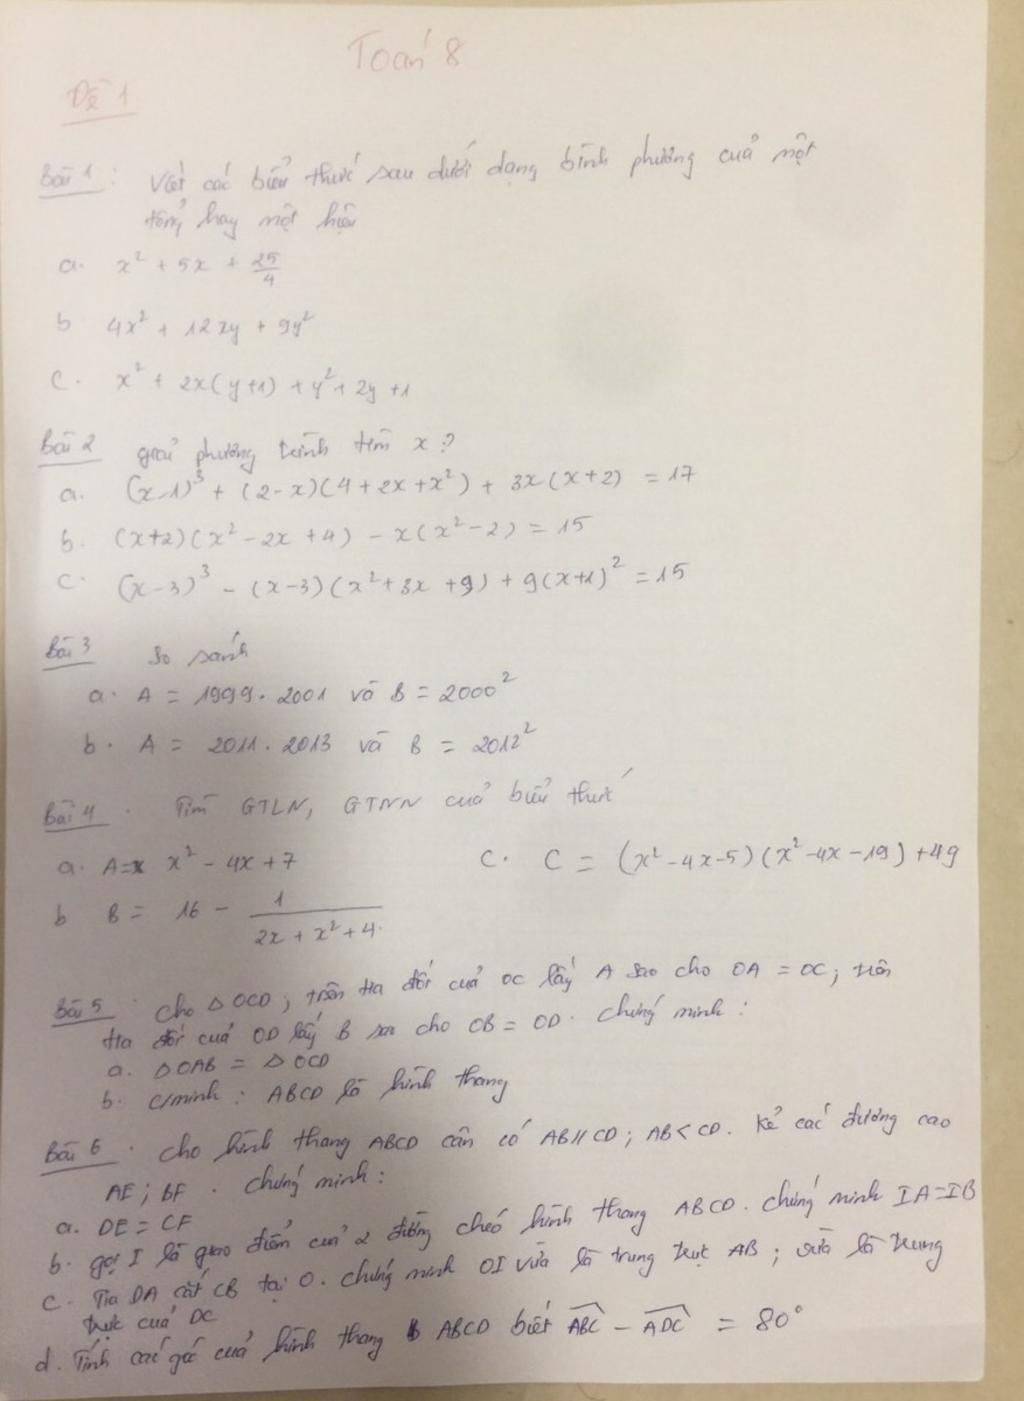 Toán 8
Đề 1
Bài 1 : Viết các biểu thức sau dưới dạng bình phương của một
tổng hay một hiệu
a. x² + 5x + 25/4
b 4x² + 12xy + 9y²
c. x² + 2x(y+1) + y² + 2y + 1
Bài 2 giải phương trình tìm x ?
a. (x-1)³ + (2-x)(4+2x+x²) + 3x(x+2) = 17
b. (x+2)(x² - 2x + 4) - x(x² - 2) = 15
c. (x-3)³ - (x-3)(x²+3x+9) + 9(x+1)² = 15
Bài 3 So sánh
a. A = 1999. 2001 và B = 2000²
b. A = 2011. 2013 và B = 2012²
Bài 4 . Tìm GTLN, GTNN của biểu thức
a. A= x² - 4x + 7
c. C = (x² - 4x - 5)(x² - 4x - 19) + 49
b B = 16 - 1/(2x + x² + 4)
Bài 5 . Cho Δ OCD ; trên tia đối của OC lấy A sao cho OA = OC ; trên
tia đối của OD lấy B sao cho OB = OD. Chứng minh :
a. Δ OAB = Δ OCD
b. c/minh : ABCD là hình thang
Bài 6 . Cho hình thang ABCD cân có AB // CD ; AB < CD. Kẻ các đường cao
AE ; BF . Chứng minh :
a. DE = CF
b. gọi I là giao điểm của 2 đường chéo hình thang ABCD. chứng minh IA = IB
c. Tia DA cắt CB tại O. chứng minh OI vừa là trung trực AB ; vừa là trung
trực của DC
d. Tính các góc của hình thang ABCD biết ABC - ADC = 80°